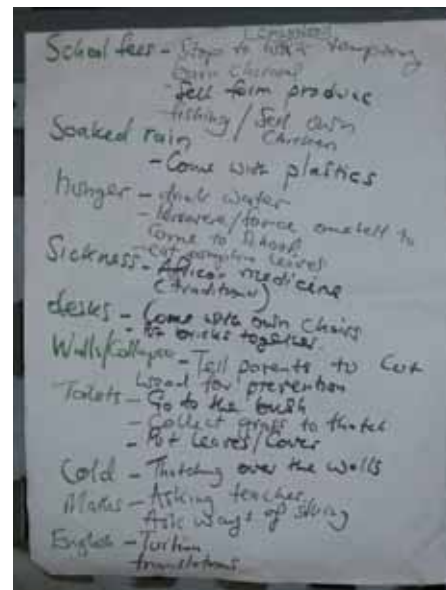 School fees - Stops to work temporary
Burn Charcoal
- Sell farm produce
fishing / Sell own
Chicken
Soaked rain
- Come with plastics
hunger - drink water
- /force oneself to
Come to School
- Eat pumpkin leaves
Sickness - African medicine
(traditional)
desks - Come with own chairs
- Put bricks together
Walls/Collapse - Tell parents to Cut
wood for prevention
Toilets - Go to the bush
- Collect grass to thatch
- Put leaves/Cover
Cold - Thatching over the walls
Maths - Asking teacher
Ask ways of
English - Tuition
translations